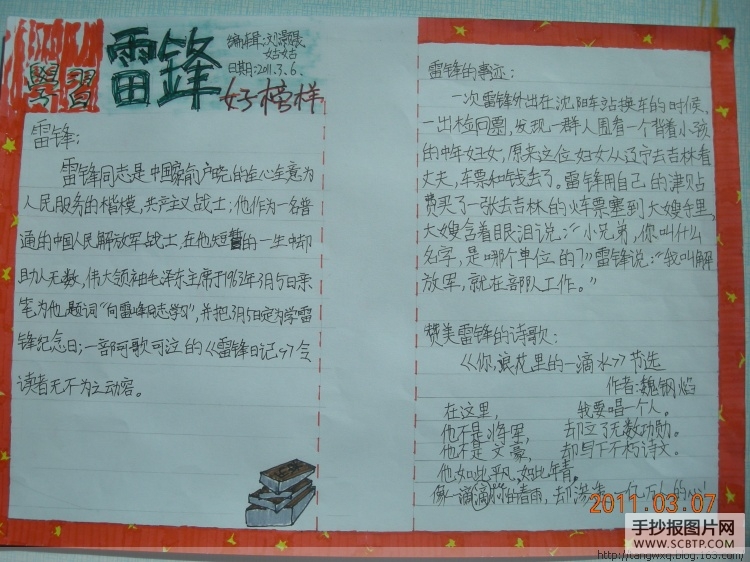 學習
雷锋
好榜样
编辑:刘景騄
姑姑
日期:2011.3.6.
雷锋:
雷锋同志是中国家喻户晓的全心全意为
人民服务的楷模,共产主义战士;他作为一名普
通的中国人民解放军战士,在他短暂的一生中却
助人无数,伟大领袖毛泽东主席于1963年3月5日亲
笔为他题词“向雷峰同志学习”,并把3月5日定为学雷
锋纪念日;一部可歌可泣的《雷锋日记》令
读者无不为之动容。
雷锋的事迹:
一次雷锋外出在沈阳车站换车的时候,
一出检问票,发现一群人围着一个背着小孩
的中年妇女,原来这位妇女从辽宁去吉林看
丈夫,车票和钱丢了。雷锋用自己的津贴
费买了一张去吉林的火车票塞到大嫂手里,
大嫂含着眼泪说:“小兄弟,你叫什么
名字,是哪个单位的?”雷锋说:“我叫解
放军,就在部队工作。”
赞美雷锋的诗歌:
《你,浪花里的一滴水》节选
作者:魏钢焰
在这里, 我要唱一个人。
他不是将军, 却立了无数功勋。
他不是文豪, 却写下不朽诗文。
他如此平凡,如此年青。
像一滴滴 的春雨,却 一亿万人的心!
2011.03.07
手抄报图片网
WWW.SCBTP.COM
http://tangwxq.blog.163.com